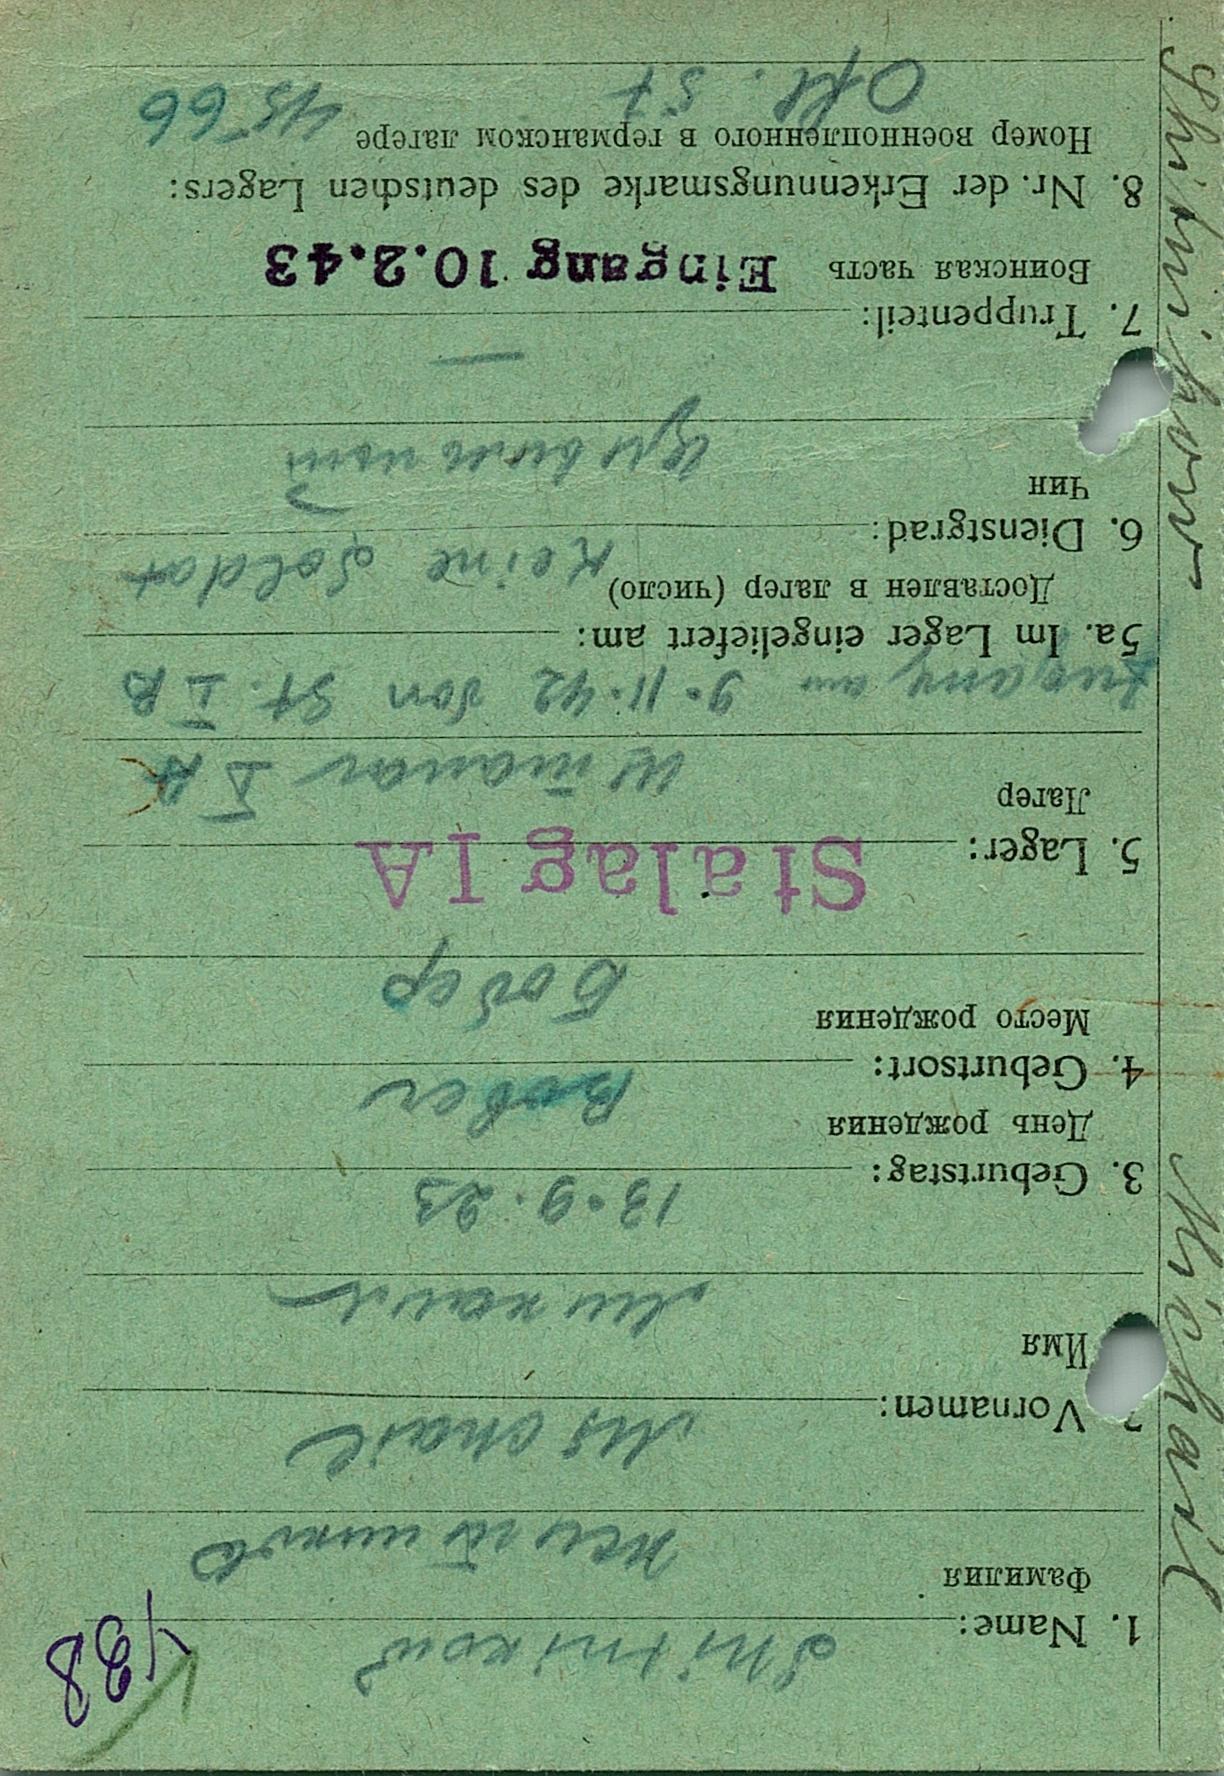 438
1. Name: Shitnikow
Фамилия Житников
2. Vornamen: Michail
Имя Михаил
3. Geburtstag: 13.9.23
День рождения
4. Geburtsort: Bober
Место рождения Бобер
5. Lager: Stalag IA
Лагер Шталаг IA
Zugang am 9.11.42 von St. IB
5a. Im Lager eingeliefert am:
Доставлен в лагер (число)
6. Dienstgrad: Keine Soldat
Чин
7. Truppenteil: —
Воинская часть Eingang 10.2.43
8. Nr. der Erkennungsmarke des deutschen Lagers:
Номер военнопленного в германском лагере 4566
Ofl. 57
Shitnikow Michail